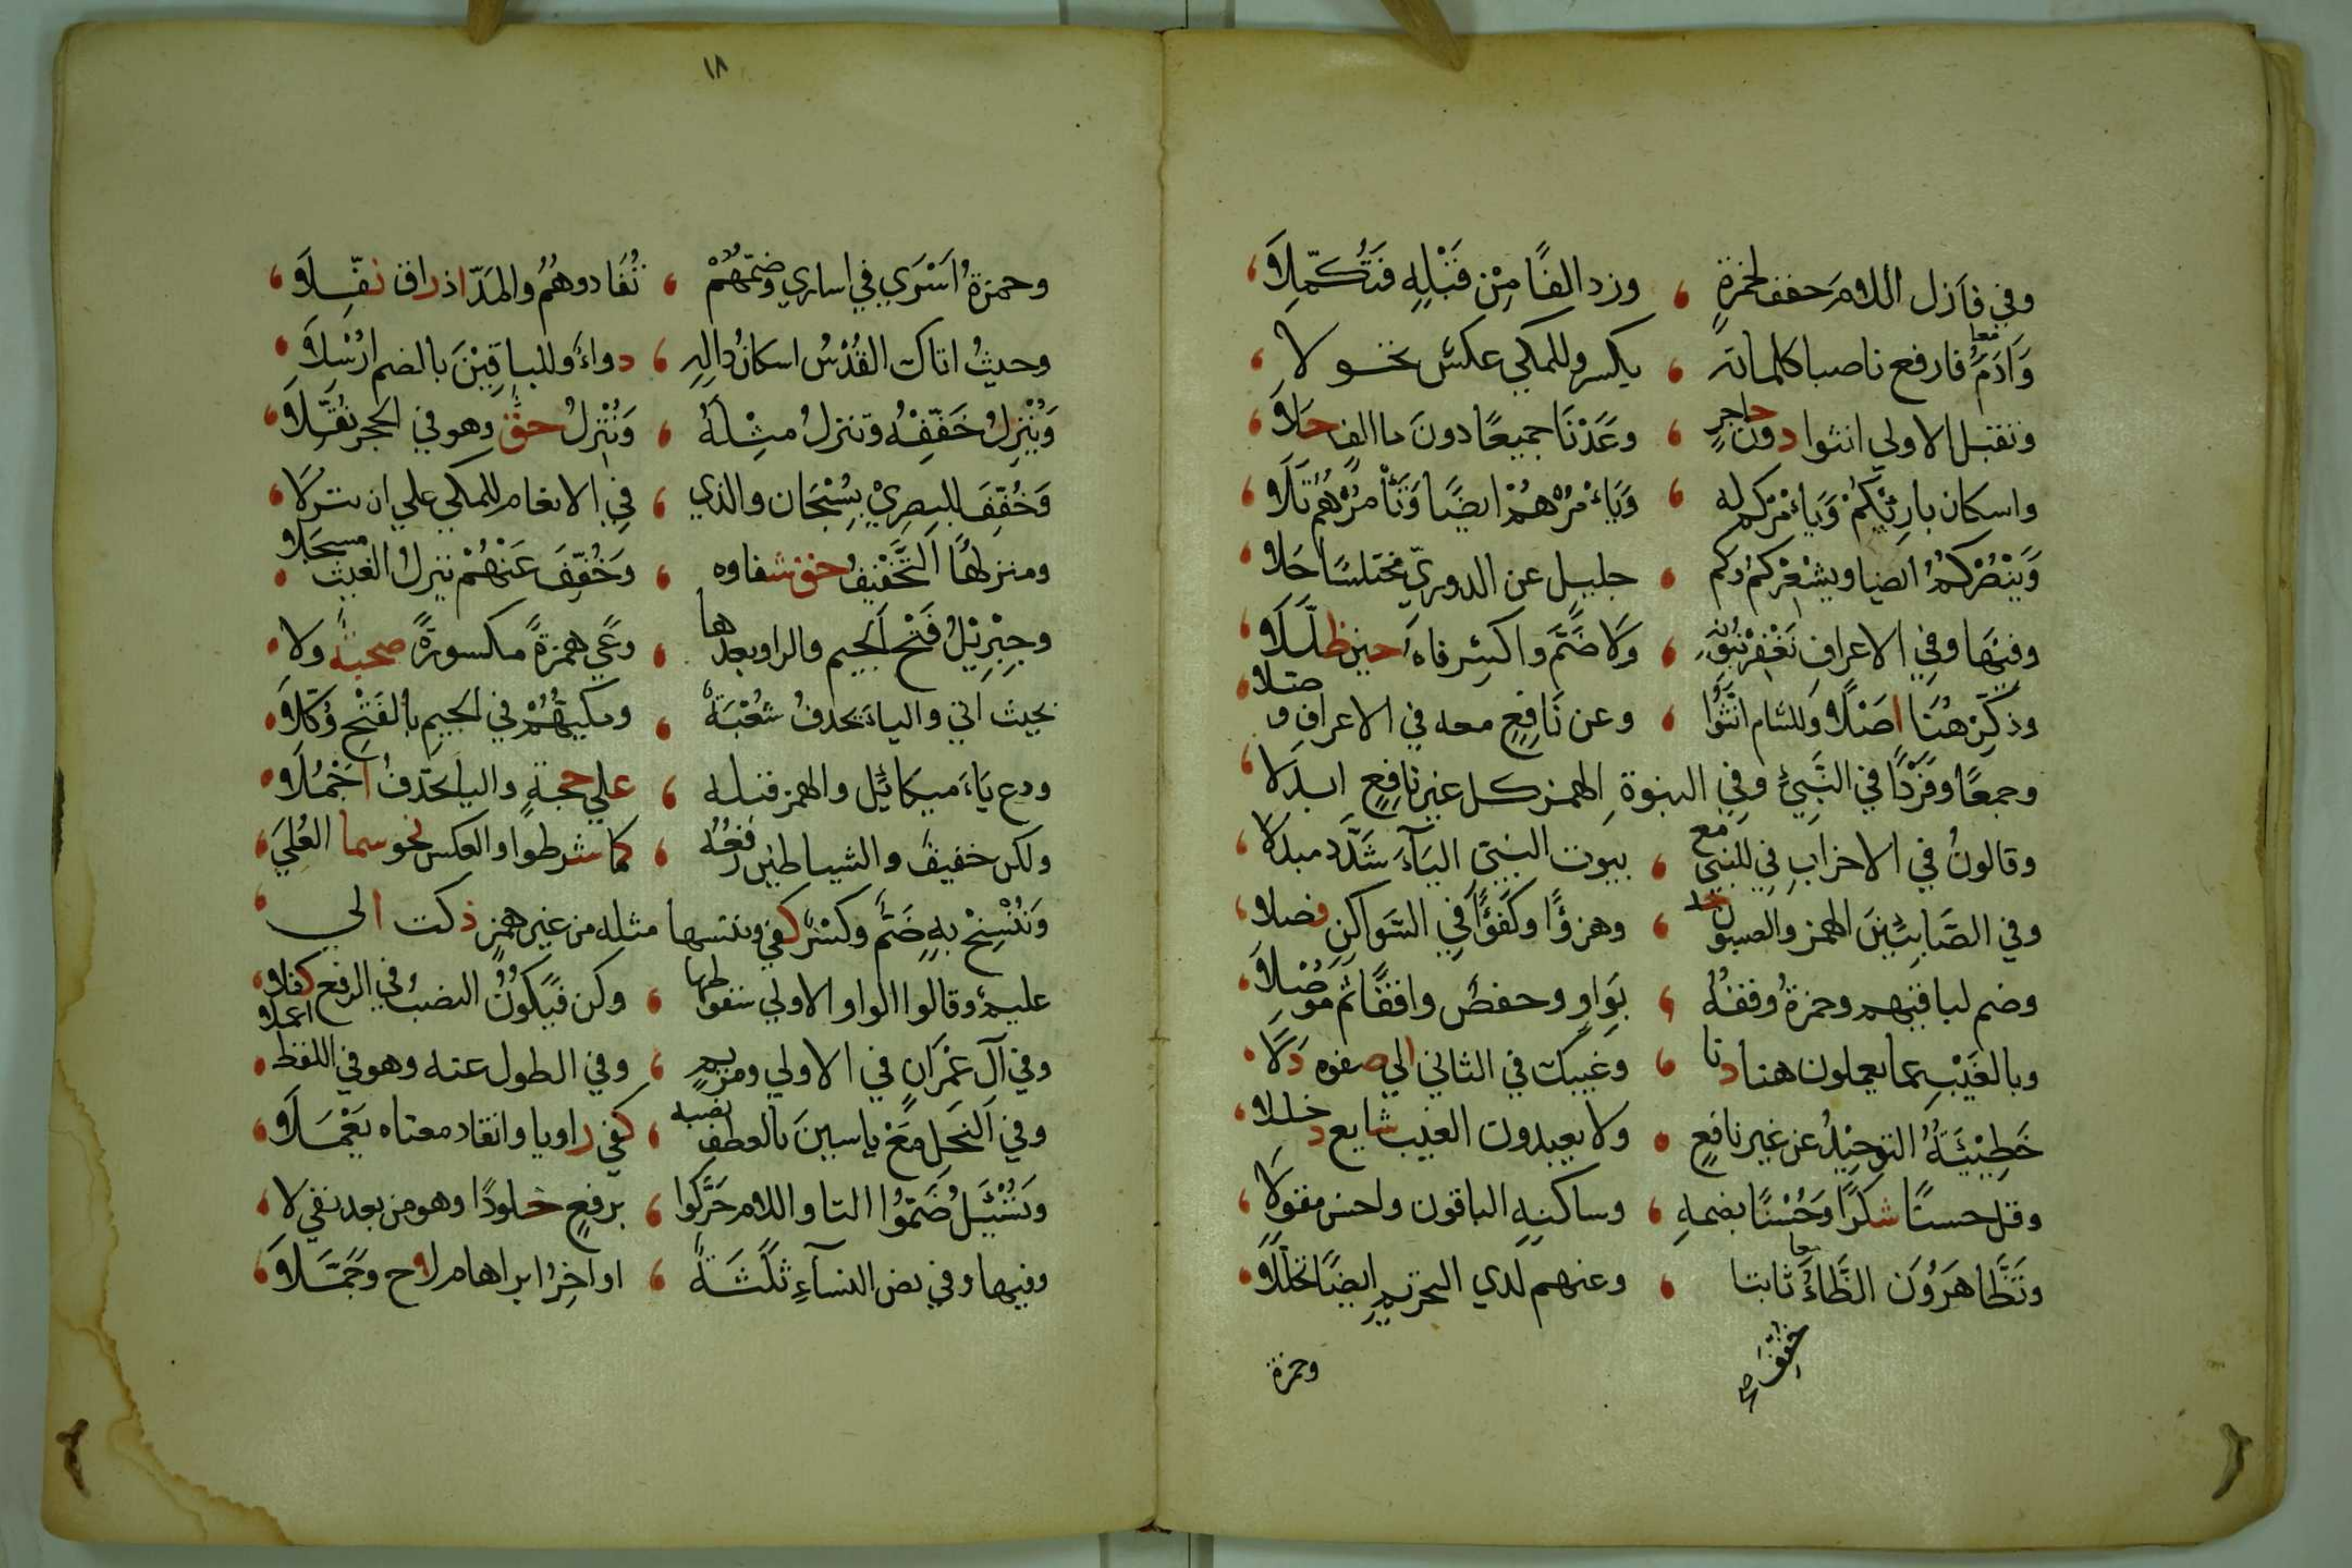 وفي فازل اللام خفف لحمزةٍ ، وزد الفًا مِنْ قَبْلِهِ فَتُكَمِّلاَ
وَآدَمَ فارفع ناصبا كلماته ، بكسر وللمكي عكسٌ تحولا
معا
وتقبل الاولي انثوا دون حاجزٍ ، وعَدْنَا جميعًا دونَ ما الفٍ حَلاَ
واسكان بارِئْكُمْ وَيَأْمُرُكم له ، وَيَأْمُرُهُمْ ايضًا وَتَأْمُرُهُمْ تَلاَ
وَيَنْصُرُكُمُ ايضا ويشْعِرُكُمْ وكم ، جليل عن الدوريّ مختلسًا جَلاَ
وفيهَا وفي الاعرافِ نَغْفِرْ بنُونِهِ ، وَلاَ ضَمَّ واكْسِر فاهُ حين ظَلَّلاَ
وذكِّرْ هُنَا اصْلاً وَللشام انَّثُوا ، وعن نَافِعٍ معه في الاعرافِ وصلا
وجمعًا وفَرْدًا في النَّبِيْ وفي النبوة الهمز كل غير نافعٍ ابدلا
وقالونُ في الاحزابِ في للنبي مع ، بيوت النبيّ اليَآءَ شَدَّدَ مبدلا
وفي الصَّابِئينَ الهمز والصبون خذ ، وهزؤًا وكفؤًا في السَّواكنِ فصلا
وضم لباقيهم وحمزةُ وقفهُ ، بَواوٍ وحفصٌ واقفًا ثم مُوْصِلاَ
وبالغَيْبِ عما يعملون هنا دنا ، وغيبك في الثاني الي صفوه دَلاَ
خَطِيْئَتُهُ التوحِيْدُ عن غير نافعٍ ، ولا يعبدون الغيب شايع دخللا
وقل حسنًا شكرًا وَحُسْنًا بضمهِ ، وساكنهِ الباقون واحسن مقولا
وتَظَّاهَرُوْنَ الظَّاءُ ثابتا ، وعنهم لدي التحريم ايضًا تحلّلاَ
معا
خُفِّفَ صح
وحمزة
١٨
وحمزةُ اَسْرَي في اساري وضمّهُمْ ، تُفَادوهُمُ والمَدّ اذ راق نفّلاَ
وحيثُ اتاك القُدْسُ اسكانُ دالِهِ ، دواءٌ وللباقِيْنَ بالضم ارْسِلاَ
وَيُنْزِلُ خَفِّفْهُ وتنزلُ مِثْلُهُ ، وَنُنْزِلُ حقٌ وهو في الحجر ثُقِّلاَ
وَخُفِّفَ للبصرِيْ بِسُبْحَان والذي ، في الانعام للمكي علي ان ينزلا
ومنزلهَا التَّخْفِيْفُ حق شفاوه ، وَخُفِّفَ عَنْهُمْ ينزل الغيث مسجلا
وجِبْرِيْلُ فَتْحُ الجيم والرا وبعدها ، وعَي همزةً مكسورةً صحبةٌ ولا
بحيث اتي والياءَ يحذفُ شُعْبَةٌ ، ومكيهُمْ في الجيمِ بالفَتْحِ وُكِّلاَ
ودع ياءَ ميكائيل والهمز قبله ، علي حجةٍ واليا يحذفُ اجْمُلاَ
ولكن خفيفٌ والشياطين رَفْعُهُ ، كما شرطوا والعكس نحو سما العُلَي
وَنُنْسِخْ بهِ ضَمٌّ وكسْرٌ كفي وننسها مثله من غير همزٍ ذكت الي
عليمٌ وقالوا الواو الاولي سقوطها ، وكن فيَكُونُ النصبُ في الرفع كفلا
وفي آل عِمْرَان في الاولي ومريمٍ ، وفي الطول عنه وهو في اللفظ اعملا
وفي النَحل مَعْ ياسينَ بالعطف نصبه ، كفي راويا وانقاد معناه يَعْمَلاَ
وتَسْئَلُ ضَمُّوا التا واللام حَرَّكوا ، برفعٍ خلودًا وهو من بعد نفي لا
وفيها وفي نص النسآءِ ثلَثَةٌ ، اواخِرُ ابراهام لاح وجَمَّلاَ